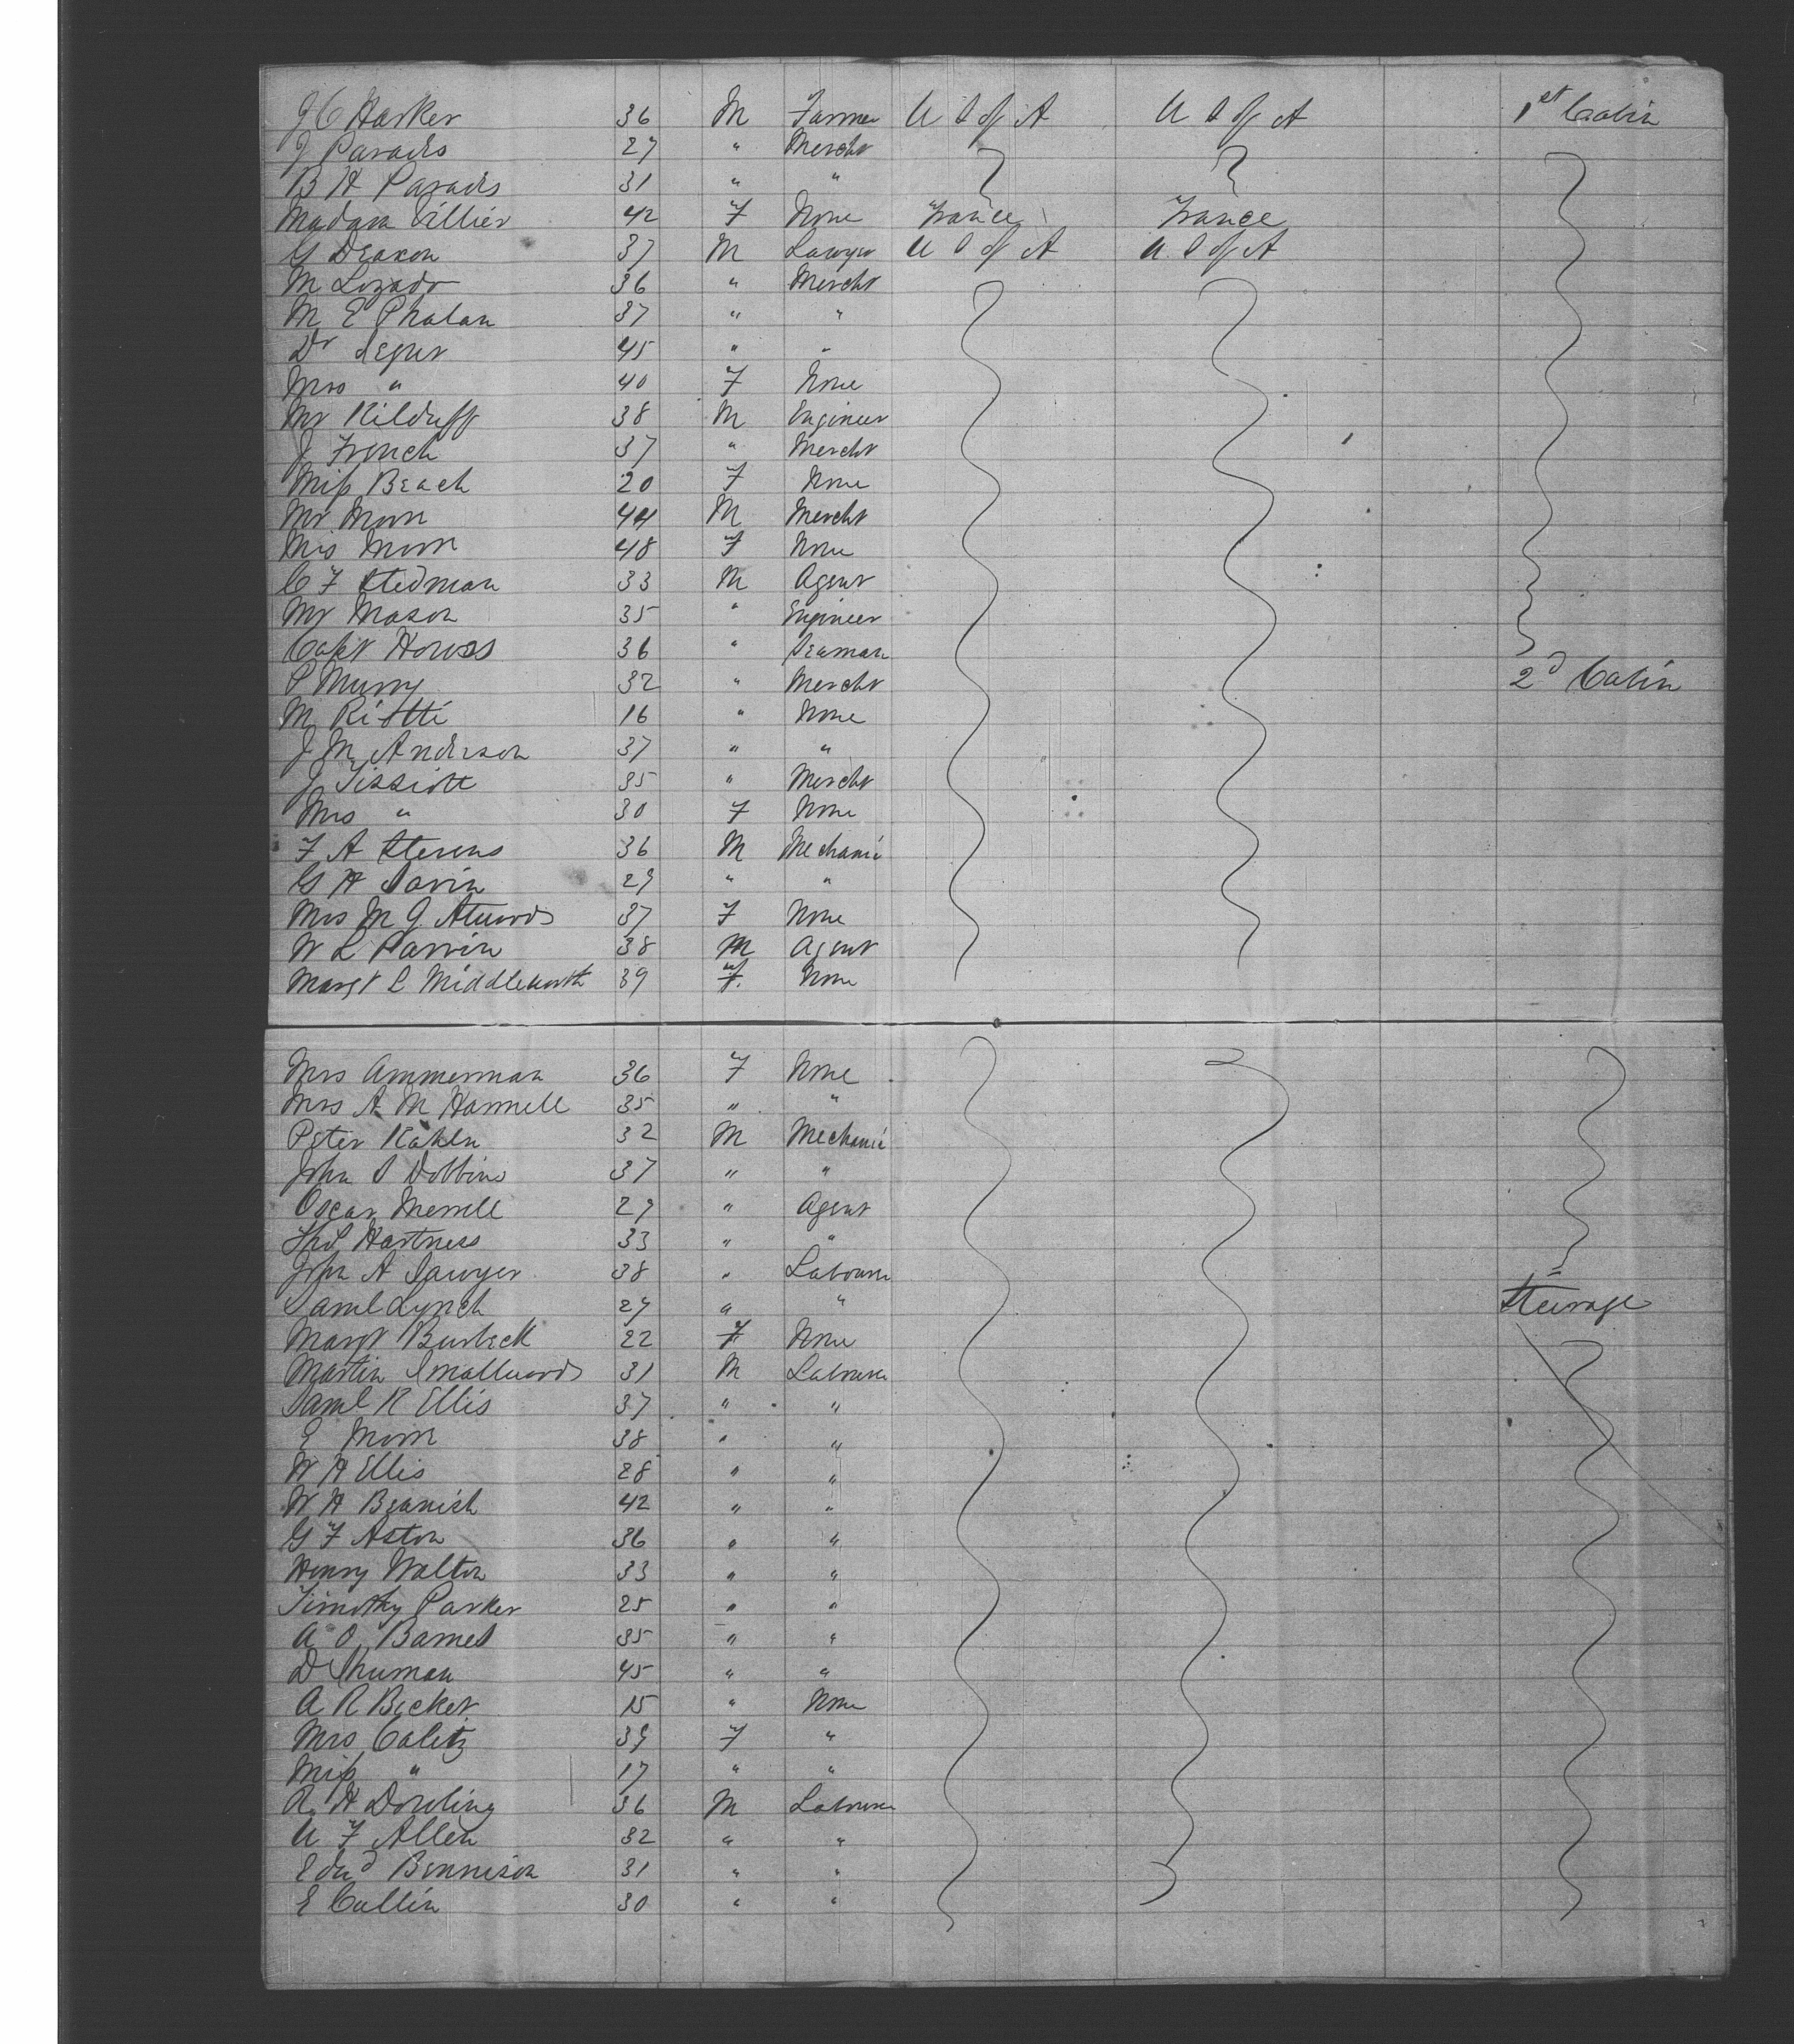 J C Harker 36 M Farmer U S of A U S of A 1st Cabin
J Paradis 27 " Mercht
B H Paradis 31 " "
Madam Villier 42 F None France France
G Deakon 37 M Lawyer U S of A U S of A
M Lozado 36 " Mercht
M E Phalan 37 " "
Dr Seger 45 " "
Mrs " 40 F None
Mr Kilduff 38 M Engineer
J French 37 " Mercht
Miss Beach 20 F None
Mr Moon 44 M Mercht
Mrs Moon 48 F None
C F Stedman 33 M Agent
Mr Mason 35 " Engineer
Capt Howes 36 " Seaman
P Murry 32 " Mercht 2d Cabin
M Riotti 16 " None
J M Anderson 37 " "
J Tissiott 35 " Mercht
Mrs " 30 F None
F A Stevens 36 M Mechanic
G H Savin 29 " "
Mrs M G Atwood 37 F None
W L Parvin 38 M Agent
Margt L Middleworth 39 F. None
Mrs Ammerman 36 F None
Mrs A M Hammell 35 " "
Peter Kahln 32 M Mechanic
John S Dobbins 37 " "
Oscar Merrell 29 " Agent
Thos Hartness 33 " "
John A Sawyer 38 " Labourer
Saml Lynch 27 " " Steerage
Margt Burbeck 22 F. None
Martin Smallwood 31 M Labourer
Saml R Ellis 37 " "
E Moon 38 " "
W H Ellis 28 " "
W H Beanish 42 " "
G F Aston 36 " "
Henry Walton 33 " "
Timothy Parker 25 " "
A O Barnes 35 " "
D Shuman 45 " "
A R Becker 15 " None
Mrs Calitz 39 F "
Miss " 17 " "
R H Dowling 36 M Labourer
U F Allen 32 " "
Edwd Bennison 31 " "
E Cullin 30 " "